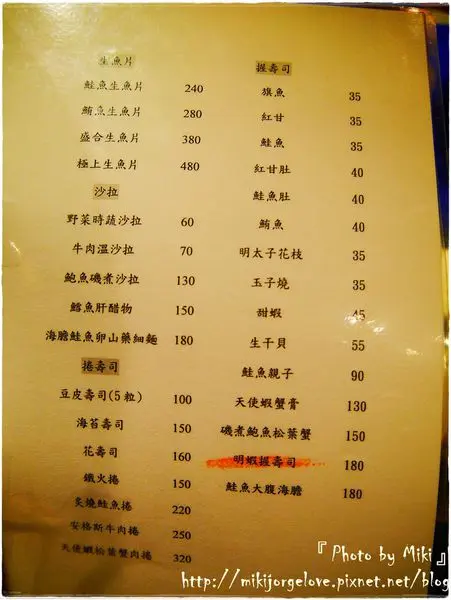 生魚片
鮭魚生魚片 240
鮪魚生魚片 280
盛合生魚片 380
極上生魚片 480
沙拉
野菜時蔬沙拉 60
牛肉溫沙拉 70
鮑魚磯煮沙拉 130
鱈魚肝醋物 150
海膽鮭魚卵山藥細麵 180
捲壽司
豆皮壽司(5粒) 100
海苔壽司 150
花壽司 160
鐵火捲 150
炙燒鮭魚捲 220
安格斯牛肉捲 250
天使蝦松葉蟹肉捲 320
握壽司
旗魚 35
紅甘 35
鮭魚 35
紅甘肚 40
鮭魚肚 40
鮪魚 40
明太子花枝 35
玉子燒 35
甜蝦 45
生干貝 55
鮭魚親子 90
天使蝦蟹膏 130
磯煮鮑魚松葉蟹 150
明蝦握壽司 180
鮭魚大腹海膽 180
『Photo by Miki』
http://mikijorgelove.pixnet.net/blog